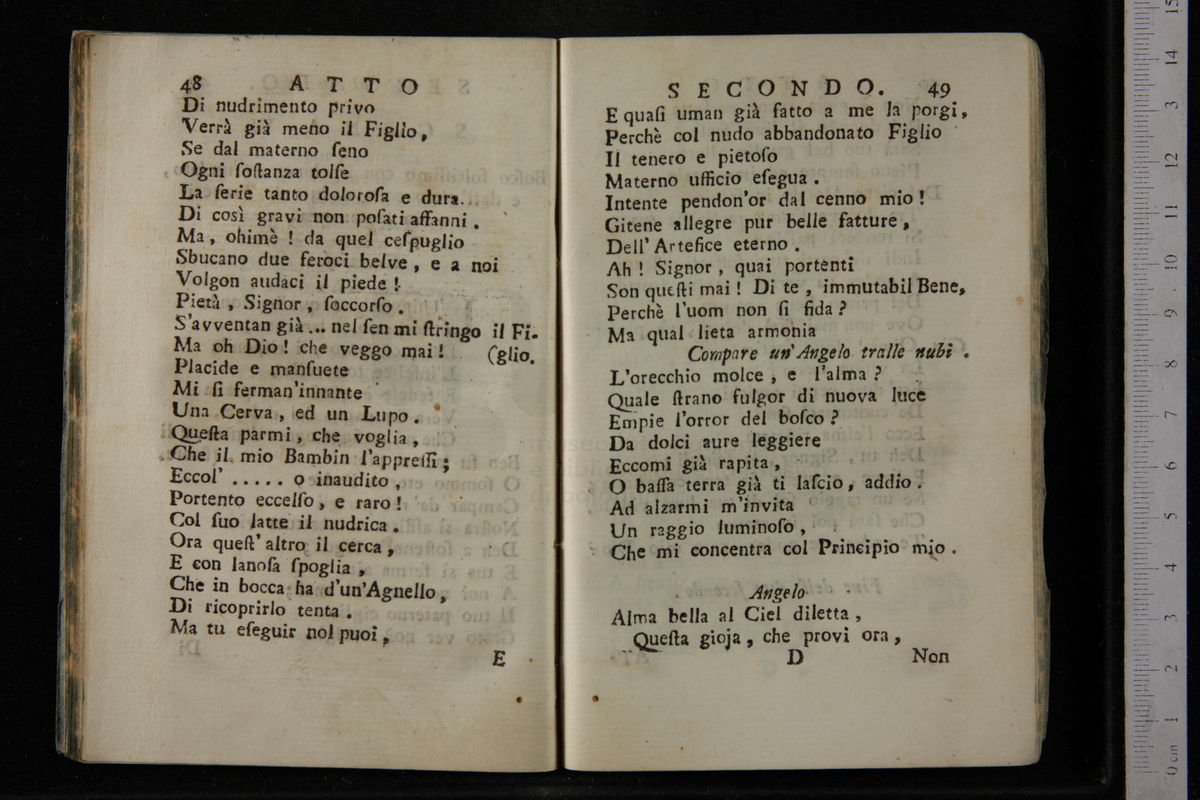 48 ATTO
Di nudrimento privo
Verrà già meno il Figlio,
Se dal materno ſeno
Ogni ſoſtanza tolſe
La ſerie tanto doloroſa e dura.
Di così gravi non poſati affanni.
Ma, ohimè ! da quel ceſpuglio
Sbucano due feroci belve, e a noi
Volgon audaci il piede !
Pietà, Signor, ſoccorſo.
S'avventan già ... nel ſen mi ſtringo il Fi-
Ma oh Dio ! che veggo mai ! (glio.
Placide e manſuete
Mi ſi ferman'innante
Una Cerva, ed un Lupo.
Queſta parmi, che voglia,
Che il mio Bambin l'appreſſi;
Eccol' ..... o inaudito,
Portento eccelſo, e raro !
Col ſuo latte il nudrica.
Ora queſt' altro il cerca,
E con lanoſa ſpoglia,
Che in bocca ha d'un'Agnello,
Di ricoprirlo tenta.
Ma tu eſeguir nol puoi,
E
SECONDO. 49
E quaſi uman già fatto a me la porgi,
Perchè col nudo abbandonato Figlio
Il tenero e pietoſo
Materno ufficio eſegua.
Intente pendon'or dal cenno mio !
Gitene allegre pur belle fatture,
Dell' Artefice eterno.
Ah ! Signor, quai portenti
Son queſti mai ! Di te, immutabil Bene,
Perchè l'uom non ſi fida ?
Ma qual lieta armonia
Compare un' Angelo tralle nubi.
L'orecchio molce, e l'alma ?
Quale ſtrano fulgor di nuova luce
Empie l'orror del boſco ?
Da dolci aure leggiere
Eccomi già rapita,
O baſſa terra già ti laſcio, addio.
Ad alzarmi m'invita
Un raggio luminoſo,
Che mi concentra col Principio mio.
Angelo
Alma bella al Ciel diletta,
Queſta gioja, che provi ora,
D Non